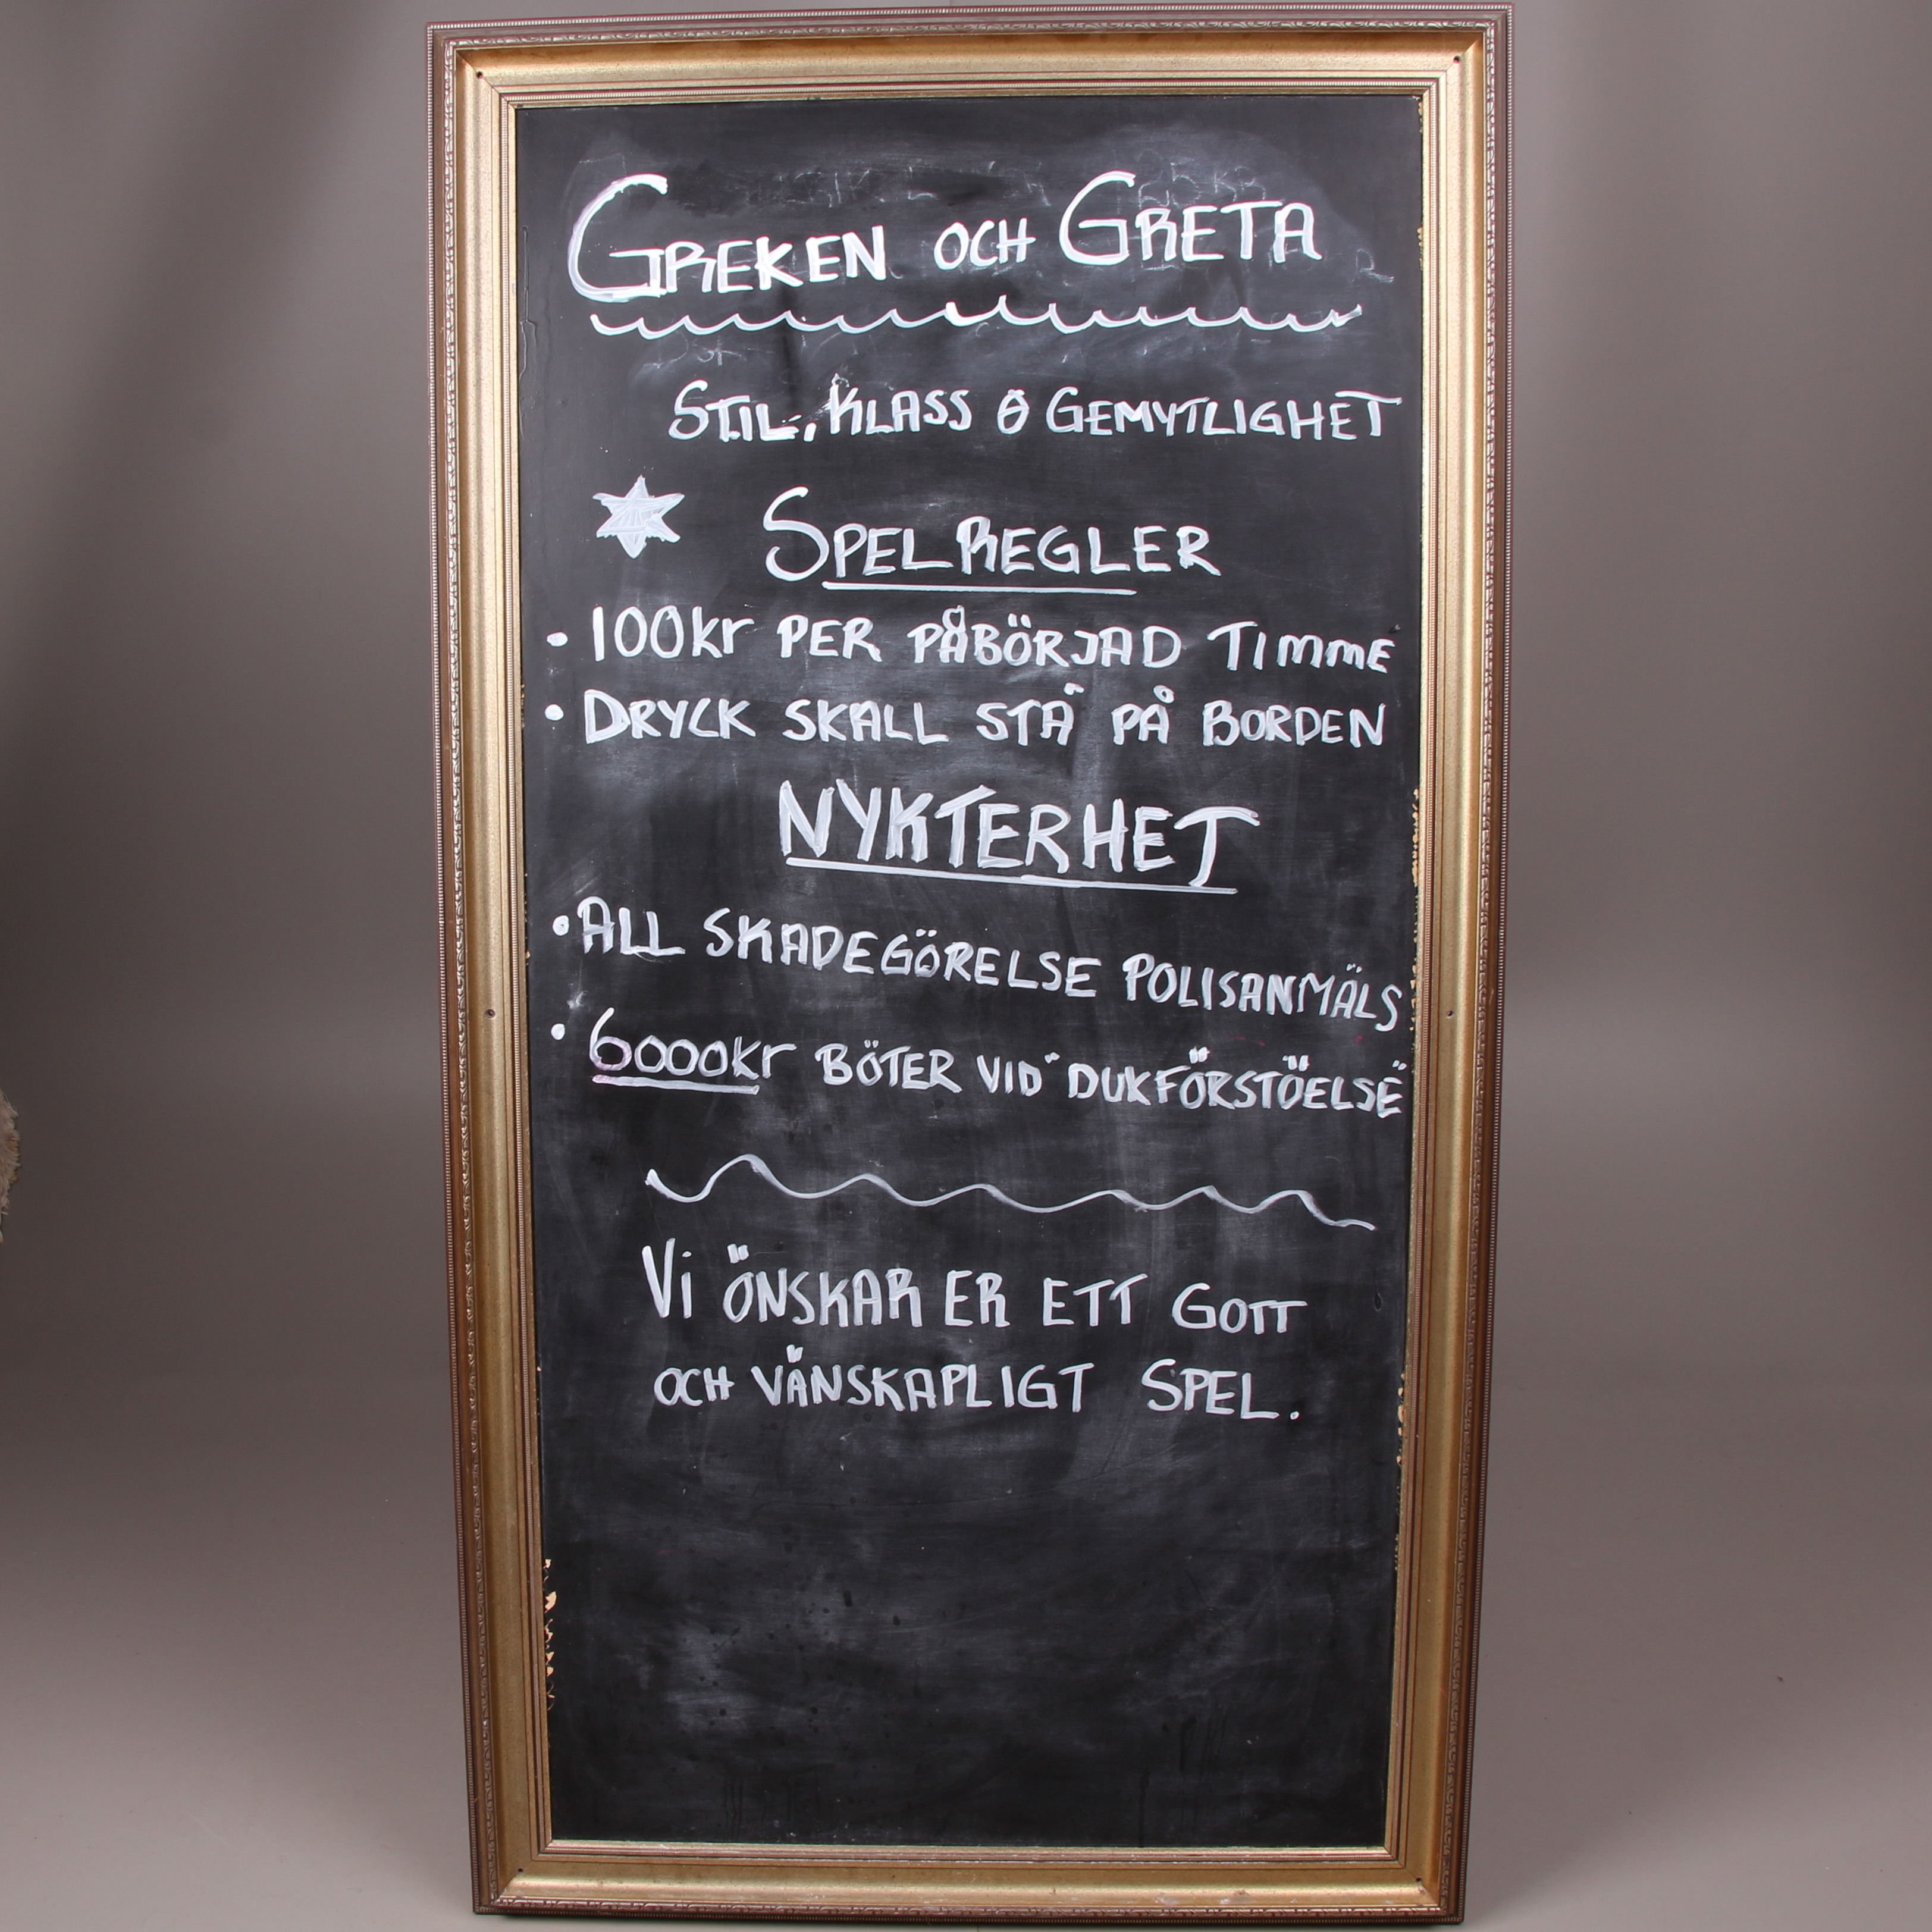 GREKEN OCH GRETA
STIL, KLASS & GEMYTLIGHET
SPELREGLER
• 100kr PER PÅBÖRJAD TIMME
• DRYCK SKALL STÅ PÅ BORDEN
NYKTERHET
• ALL SKADEGÖRELSE POLISANMÄLS
• 6000kr BÖTER VID "DUKFÖRSTÖELSE"
Vi ÖNSKAR ER ETT GOTT
OCH VÄNSKAPLIGT SPEL.